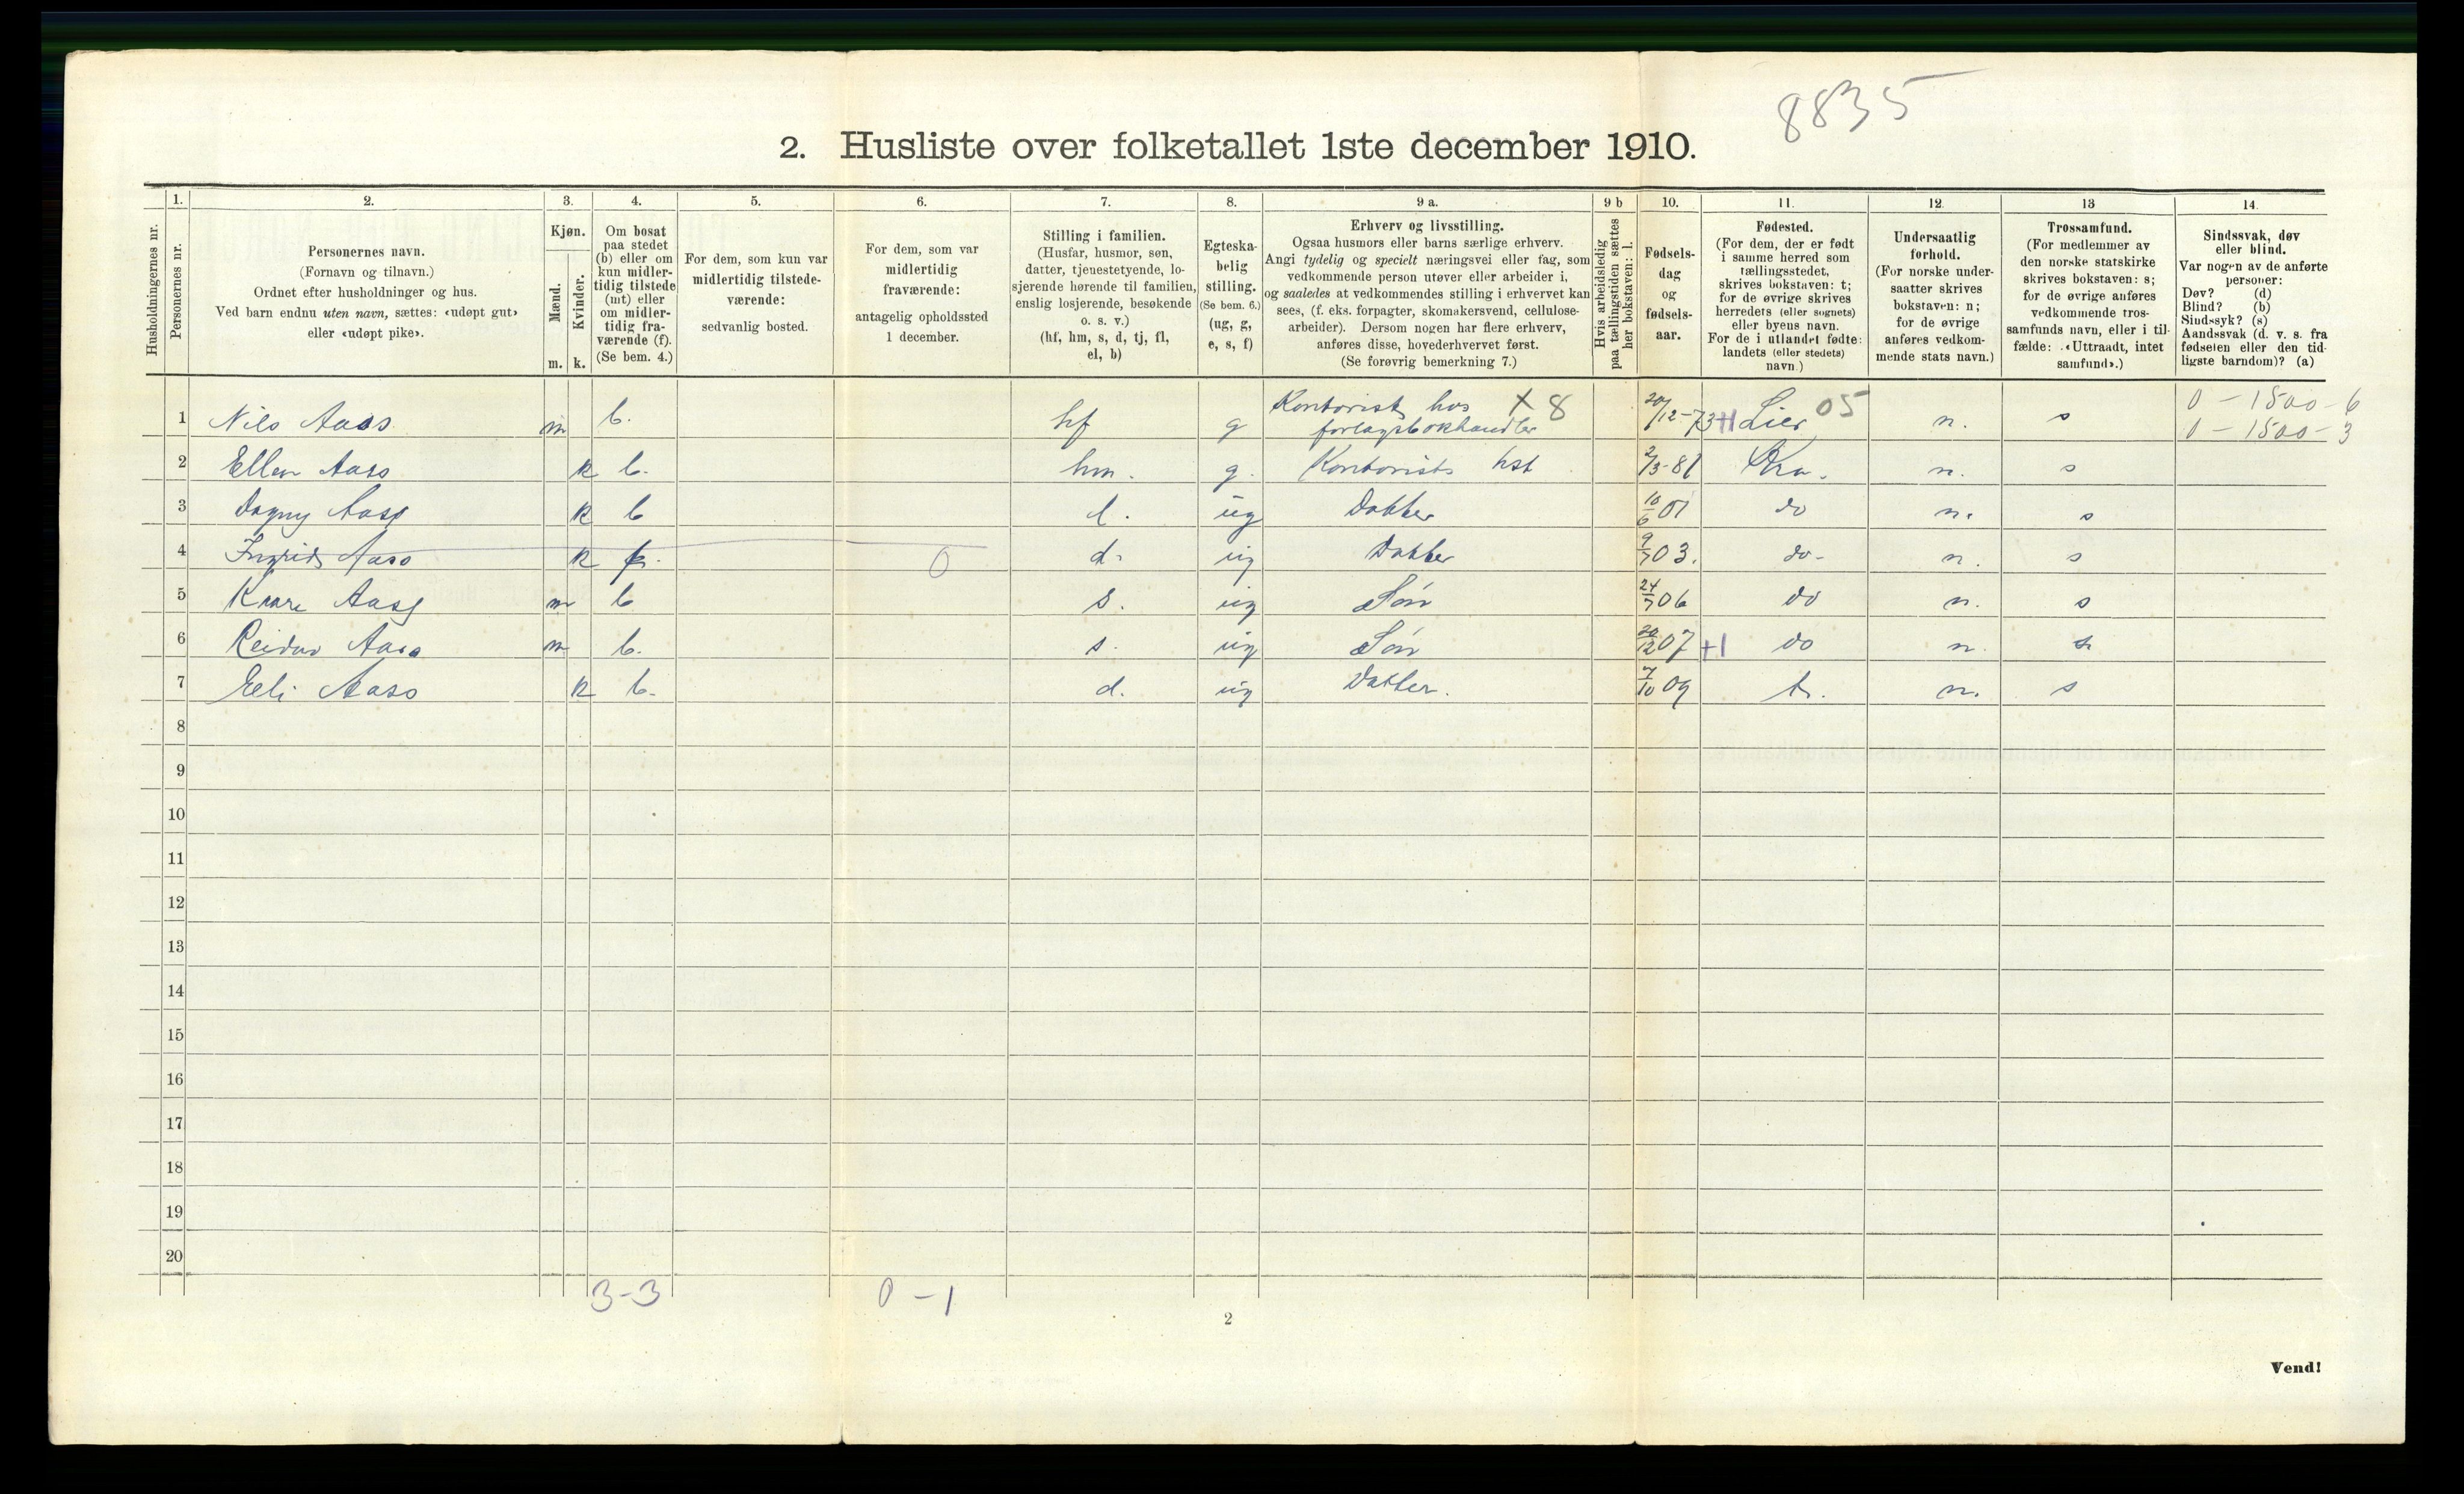 8835
2. Husliste over folketallet 1ste december 1910.
1. 2. 3. 4. 5. 6. 7. 8. 9 a. 9 b 10. 11. 12. 13 14.
Husholdningernes nr.
Personernes nr.
Personernes navn.
(Fornavn og tilnavn.)
Ordnet efter husholdninger og hus.
Ved barn endnu uten navn, sættes: «udøpt gut»
eller «udøpt pike».
Kjøn.
Mænd.
Kvinder.
m. k.
Om bosat
paa stedet
(b) eller om
kun midler-
tidig tilstede
(mt) eller
om midler-
tidig fra-
værende (f).
(Se bem. 4.)
For dem, som kun var
midlertidig tilstede-
værende:
sedvanlig bosted.
For dem, som var
midlertidig
fraværende:
antagelig opholdssted
1 december.
Stilling i familien.
(Husfar, husmor, søn,
datter, tjenestetyende, lo-
sjerende hørende til familien,
enslig losjerende, besøkende
o. s. v.)
(hf, hm, s, d, tj, fl,
el, b)
Egteska-
belig
stilling.
(Se bem. 6.)
(ug, g,
e, s, f)
Erhverv og livsstilling.
Ogsaa husmors eller barns særlige erhverv.
Angi tydelig og specielt næringsvei eller fag, som
vedkommende person utøver eller arbeider i,
og saaledes at vedkommendes stilling i erhvervet kan
sees, (f. eks. forpagter, skomakersvend, cellulose-
arbeider). Dersom nogen har flere erhverv,
anføres disse, hovederhvervet først.
(Se forøvrig bemerkning 7.)
Hvis arbeidsledig
paa tællingstiden sættes
her bokstaven: l.
Fødsels-
dag
og
fødsels-
aar.
Fødested.
(For dem, der er født
i samme herred som
tællingsstedet,
skrives bokstaven: t;
for de øvrige skrives
herredets (eller sognets)
eller byens navn.
For de i utlandet fødte:
landets (eller stedets)
navn.)
Undersaatlig
forhold.
(For norske under-
saatter skrives
bokstaven: n;
for de øvrige
anføres vedkom-
mende stats navn.)
Trossamfund.
(For medlemmer av
den norske statskirke
skrives bokstaven: s;
for de øvrige anføres
vedkommende tros-
samfunds navn, eller i til-
fælde: «Uttraadt, intet
samfund».)
Sindssvak, døv
eller blind.
Var nogen av de anførte
personer:
Døv? (d)
Blind? (b)
Sindssyk? (s)
Aandssvak (d. v. s. fra
fødselen eller den tid-
ligste barndom)? (a)
1 Nils Aass m b. hf g Kontorist hos forlagsbokhandler X 8 20/12-73 +1 Lier 05 n. s 0 - 1500 - 6
0 - 1500 - 3
2 Ellen Aass k b. hm. g. Kontorists hst 2/3-81 Kra. n. s
3 Dagny Aass k b d. ug Datter 10/6 01 do n. s
4 Ingrid Aass k f. 0 d. ug Datter 9/7 03. do- n. s
5 Kaare Aass m b s. ug Søn 24/7 06 do n. s
6 Reidar Aass m b. s. ug Søn 20/12 07 +1 do n. s
7 Eli Aass k b. d. ug Datter. 7/10 09 t. n. s
8
9
10
11
12
13
14
15
16
17
18
19
20
3-3 0-1
2
Vend!